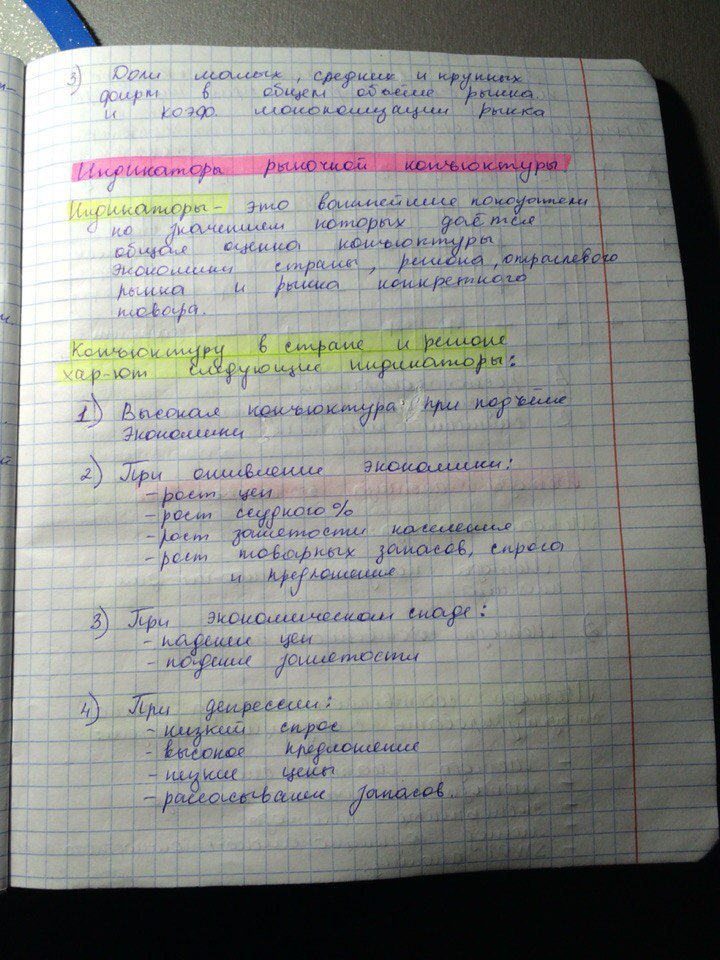 3) Доли малых, средних и крупных
фирм в общем объёме рынка
и коэф. монополизации рынка
Индикаторы рыночной конъюктуры
Индикаторы - это важнейшие показатели
по значением которых даётся
общая оценка конъюктуры
экономики страны, региона, отраслевого
рынка и рынка конкретного
товара.
Конъюктуру в стране и регионе
хар-ют следующие индикаторы:
1) Высокая конъюктура при подъёме
экономики
2) При оживление экономики:
- рост цен
- рост ссудного %
- рост занятости население
- рост товарных запасов, спроса
и предложение
3) При экономическом спаде:
- падение цен
- падение занятости
4) При депрессии:
- низкий спрос
- высокое предложение
- низкие цены
- рассасывание запасов.